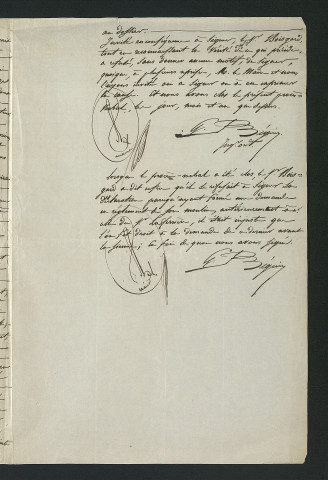 au dossier.
Invité en conséquence à signer, le Sr Boisgard,
tout en reconnaissant la vérité de ce qui précède,
a refusé, sans donner aucun motif, de signer,
quoique, à plusieurs reprises, M. le Maire et nous
l'ayons invité ou à signer ou à en exprimer
la cause. Et nous avons clos le présent procès-
verbal, les jour, mois et an que dessus.
Béguin
Lorsque le procès-verbal a été clos, le Sr Bois-
gard a dit enfin qu'il se refusait à signer sa
déclaration parceque ayant formé une demande
en règlement de son moulin, antérieurement à
celle du Sr, il était injuste que
l'on fît droit à la demande de ce dernier avant
la sienne; en foi de quoi nous avons signé.
Béguin